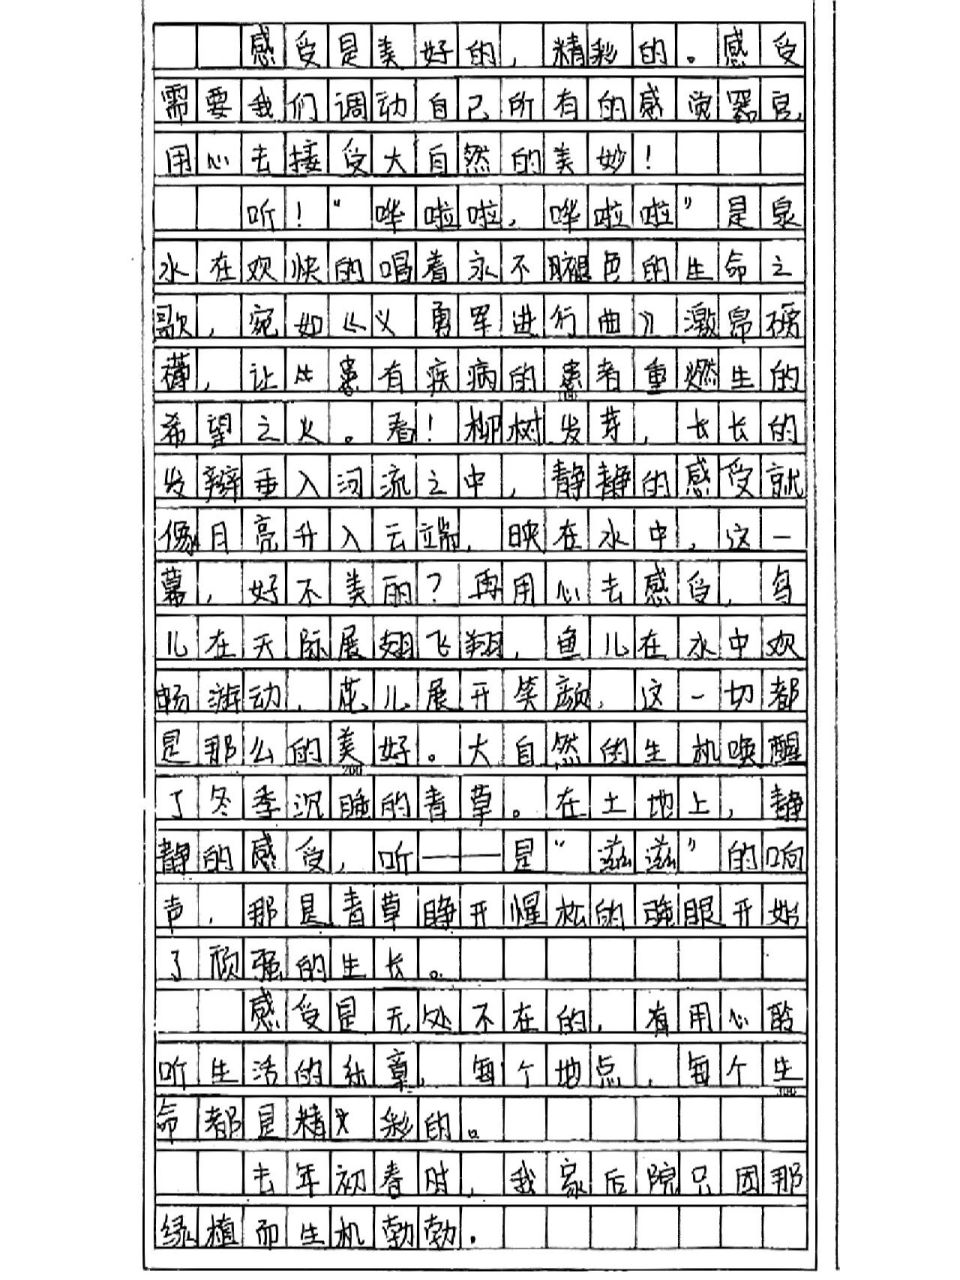 感受是美好的，精彩的。感受
需要我们调动自己所有的感觉器官，
用心去接受大自然的美妙！
听！“哗啦啦，哗啦啦”是泉
水在欢快的唱着永不褪色的生命之
歌，宛如《义勇军进行曲》激昂磅
礴，让患有疾病的患者重燃生的
希望之火。看！柳树发芽，长长的
发辫垂入河流之中，静静的感受就
像月亮升入云端，映在水中，这一
幕，好不美丽？再用心去感受，鸟
儿在天际展翅飞翔，鱼儿在水中欢
畅游动，花儿展开笑颜，这一切都
是那么的美好。大自然的生机唤醒
200
了冬季沉睡的青草。在土地上，静
静的感受，听——是“滋滋”的响
声，那是青草睁开惺松的睡眼开始
了顽强的生长。
感受是无处不在的，有用心聆
听生活的乐章，每个地点，每个生
300
命都是精彩的。
去年初春时，我家后院只因那
绿植而生机勃勃.